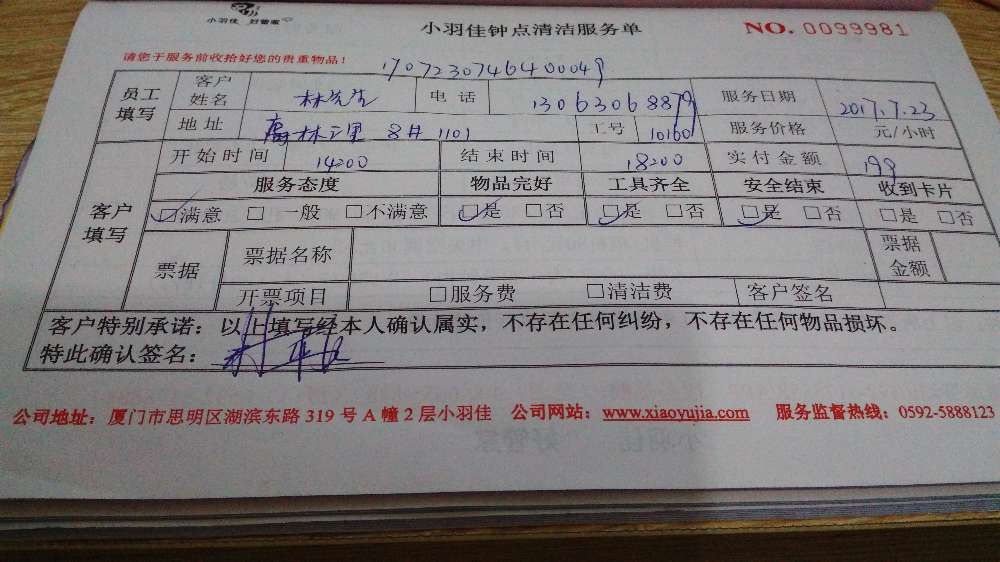 小羽佳 好管家
小羽佳钟点清洁服务单
NO. 0099981
请您于服务前收拾好您的贵重物品!
1707230746400049
员工填写 客户姓名 林先生 电话 13063068879 服务日期 2017.7.23
地址 林三里 8# 1101 工号 10160 服务价格 元/小时
开始时间 14:00 结束时间 18:00 实付金额 199
客户填写 服务态度 物品完好 工具齐全 安全结束 收到卡片
☑满意 □一般 □不满意 ☑是 □否 ☑是 □否 ☑是 □否 □是 □否
票据 票据名称 票据金额
开票项目 □服务费 □清洁费 客户签名
客户特别承诺:以上填写经本人确认属实,不存在任何纠纷,不存在任何物品损坏。
特此确认签名:
公司地址:厦门市思明区湖滨东路 319 号 A 幢 2 层小羽佳 公司网站:www.xiaoyujia.com 服务监督热线:0592-5888123